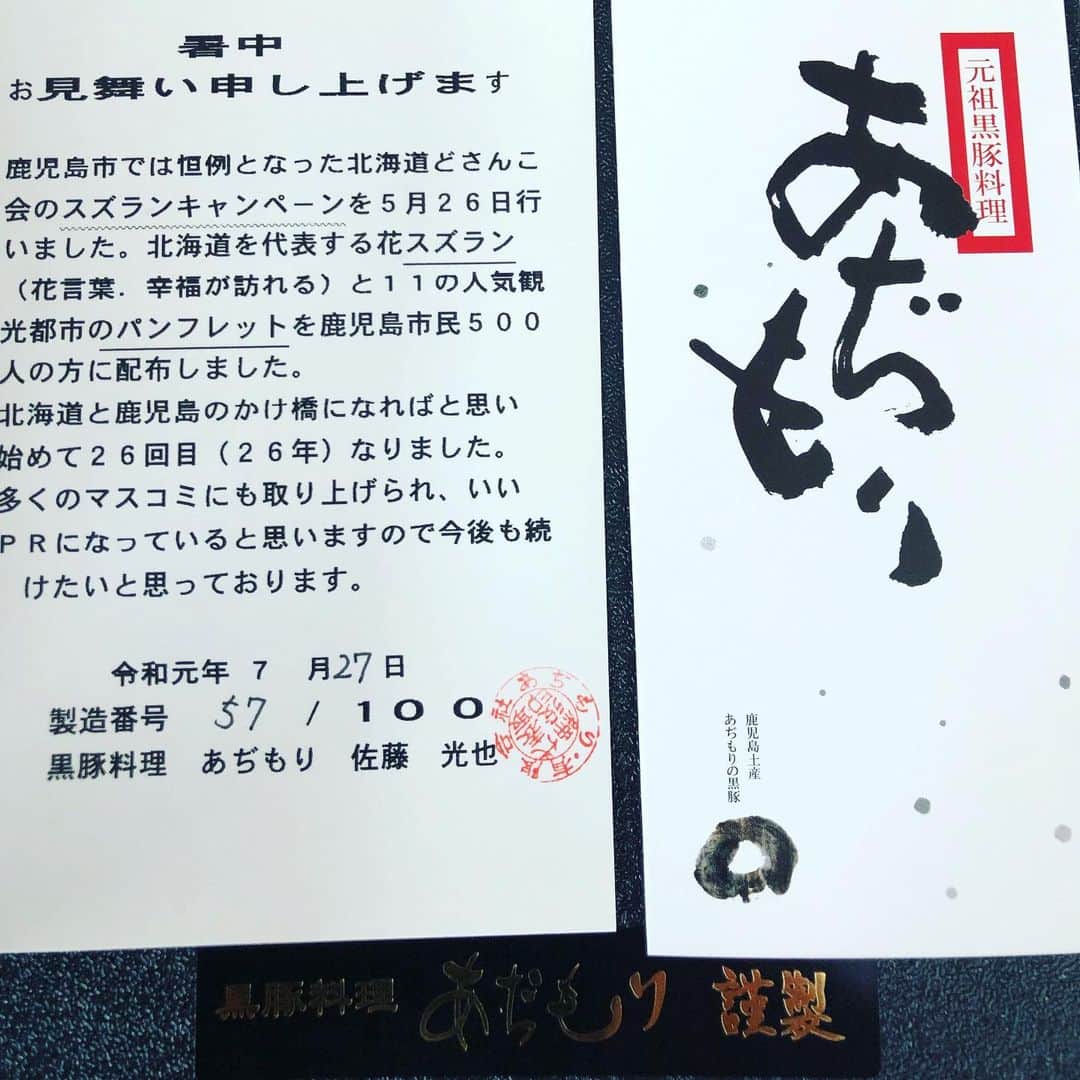 暑中
お見舞い申し上げます
鹿児島市では恒例となった北海道どさんこ
会のスズランキャンペーンを5月26日行
いました。北海道を代表する花スズラン
（花言葉．幸福が訪れる）と11の人気観
光都市のパンフレットを鹿児島市民500
人の方に配布しました。
北海道と鹿児島のかけ橋になればと思い
始めて26回目（26年）なりました。
多くのマスコミにも取り上げられ、いい
PRになっていると思いますので今後も続
けたいと思っております。
令和元年 7 月27日
製造番号 57 / 100
黒豚料理 あぢもり 佐藤 光也
元祖黒豚料理
あぢもり
鹿児島土産
あぢもりの黒豚
黒豚料理 あぢもり 謹製